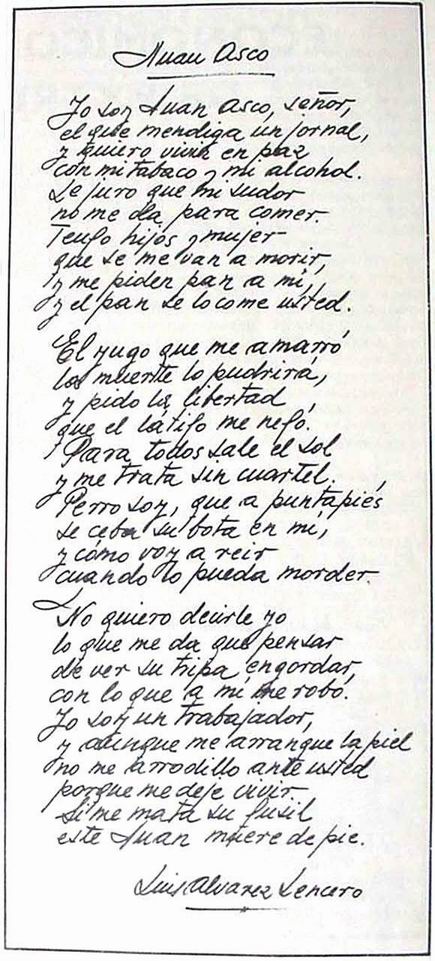 Juan Asco
Yo soy Juan Asco, señor,
el que mendiga un jornal,
y quiero vivir en paz
con mi tabaco y mi alcohol.
Le juro que mi sudor
no me da para comer.
Tengo hijos y mujer
que se me van a morir,
y me piden pan a mí,
y el pan se lo come usted.
El yugo que me amarró
la muerte lo pudrirá,
y pido la libertad
que el látigo me negó.
Para todos sale el sol
y me trata sin cuartel.
Perro soy, que a puntapiés
se ceba su bota en mí,
y cómo voy a reir
cuando lo pueda morder.
No quiero decirle yo
lo que me da que pensar
de ver su tripa engordar,
con lo que a mí me robó.
Yo soy un trabajador,
y aunque me arranque la piel
no me arrodillo ante usted
porque me deje vivir.
Si me mata su fusil
este Juan muere de pie.
Luis Alvarez Lencero